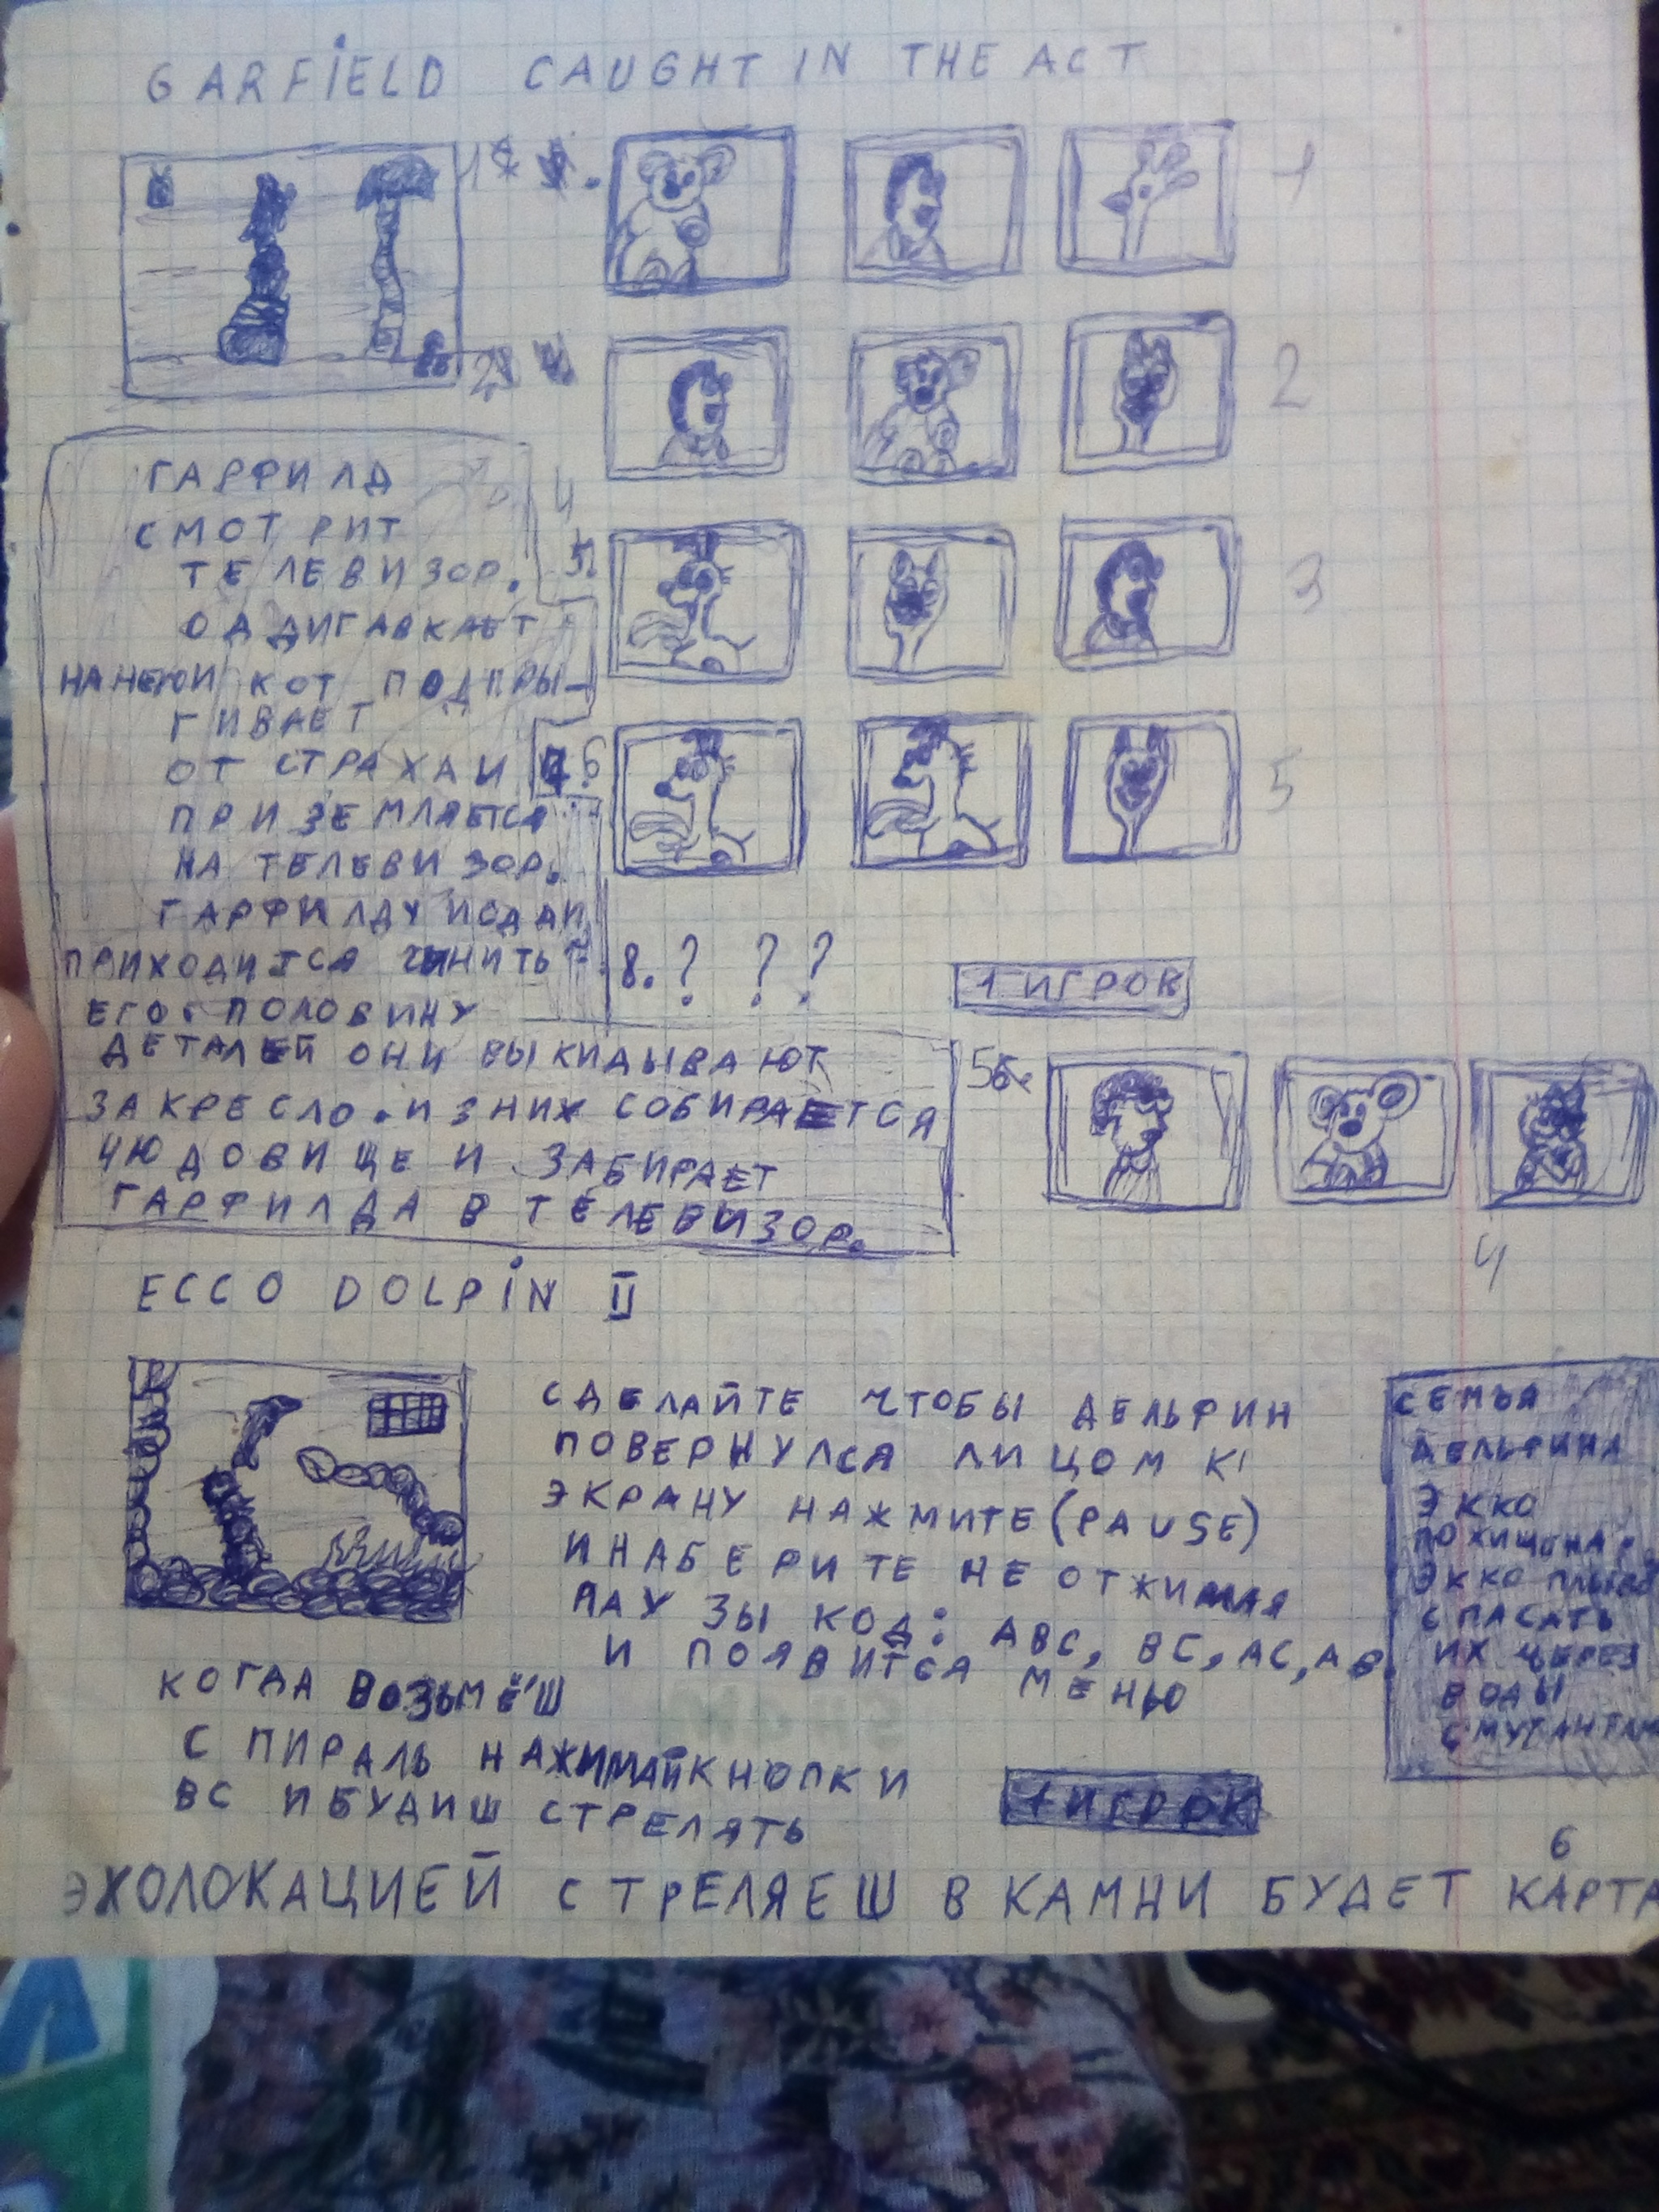 GARFIELD CAUGHT IN THE ACT
1
2
ГАРФИЛД
СМОТРИТ
ТЕЛЕВИЗОР.
ОДДИ ГАВКАЕТ
НА НЕГО И КОТ ПОДПРЫ-
ГИВАЕТ
ОТ СТРАХА И
ПРИЗЕМЛЯЕТСЯ
НА ТЕЛЕВИЗОР.
ГАРФИЛДУ И ОДДИ
ПРИХОДИТСЯ ЧИНИТЬ
ЕГО. ПОЛОВИНУ
ДЕТАЛЕЙ ОНИ ВЫКИДЫВАЮТ
ЗА КРЕСЛО. ИЗ НИХ СОБИРАЕТСЯ
ЧЮДОВИЩЕ И ЗАБИРАЕТ
ГАРФИЛДА В ТЕЛЕВИЗОР.
1
2
4
3
6
5
8. ? ? ?
1 ИГРОК
4
ECCO DOLPIN II
СДЕЛАЙТЕ ЧТОБЫ ДЕЛЬФИН
ПОВЕРНУЛСЯ ЛИЦОМ К
ЭКРАНУ НАЖМИТЕ (PAUSE)
И НАБЕРИТЕ НЕ ОТЖИМАЯ
ПАУЗЫ КОД: ABC, BC, AC, AB
И ПОЯВИТСЯ МЕНЬЮ
КОГДА ВОЗЬМЁШ
СПИРАЛЬ НАЖИМАЙ КНОПКИ
ВС И БУДИШ СТРЕЛЯТЬ
1 ИГРОК
СЕМЬЯ
ДЕЛЬФИНА
ЭККО
ПОХИЩОНА
ЭККО
СПАСАТЬ
ИХ ЧЕРЕЗ
ВОДЫ
6
ЭХОЛОКАЦИЕЙ СТРЕЛЯЕШ В КАМНИ БУДЕТ КАРТА